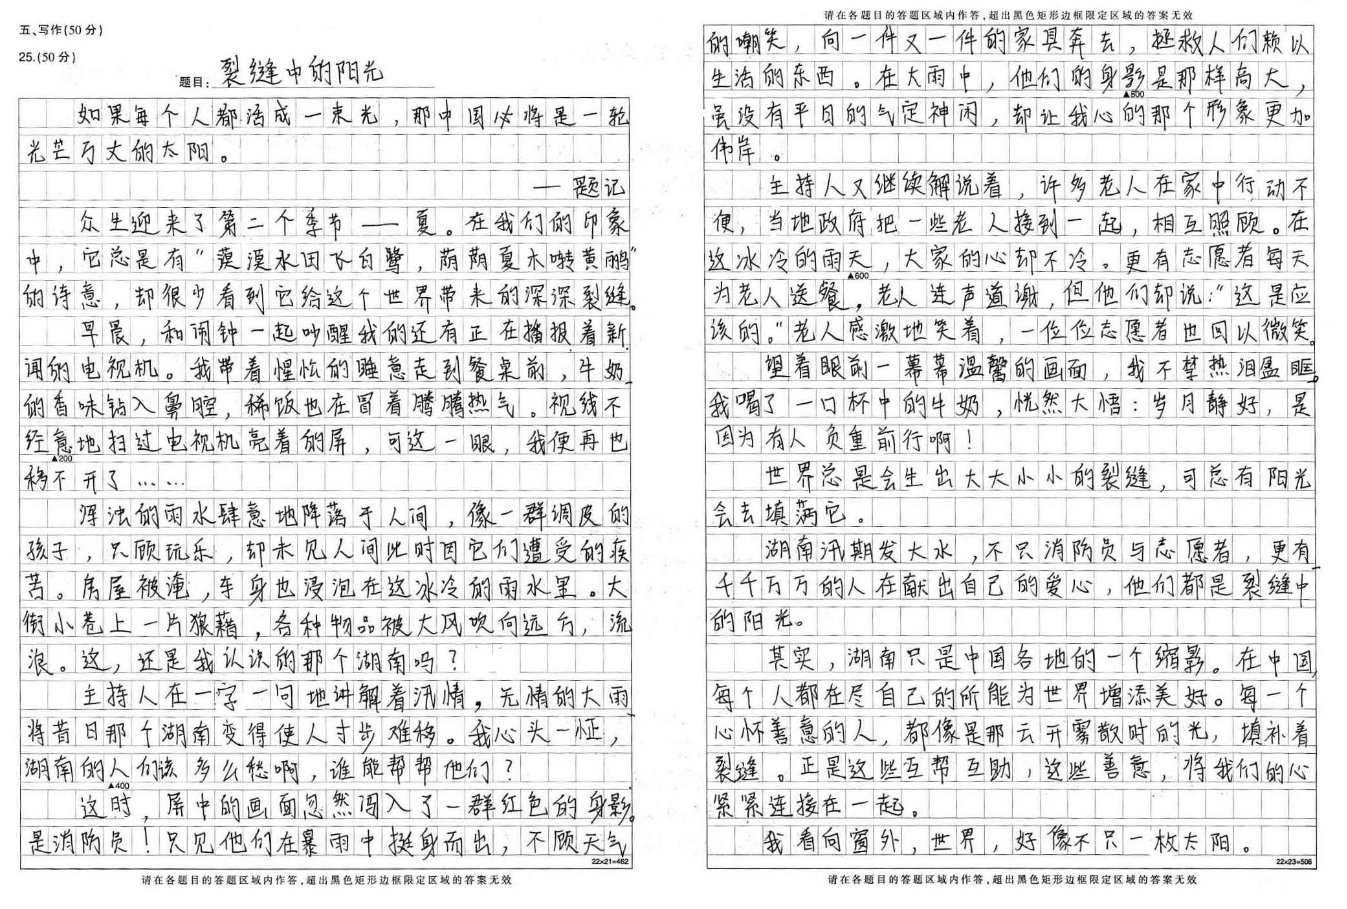 五、写作(50分)
25.(50分)
题目：裂缝中的阳光
如果每个人都活成一束光，那中国必将是一轮
光芒万丈的太阳。
—题记
众生迎来了第二个季节——夏。在我们的印象
中，它总是有“漠漠水田飞白鹭，荫荫夏木啭黄鹂”
的诗意，却很少看到它给这个世界带来的深深裂缝。
早晨，和闹钟一起吵醒我的还有正在播报着新
闻的电视机。我带着惺忪的睡意走到餐桌前，牛奶
的香味钻入鼻腔，稀饭也在冒着腾腾热气。视线不
经意地扫过电视机亮着的屏，可这一眼，我便再也
▲200
移不开了……
浑浊的雨水肆意地降落于人间，像一群调皮的
孩子，只顾玩乐，却未见人间此时因它们遭受的疾
苦。房屋被淹，车身也浸泡在这冰冷的雨水里。大
街小巷上一片狼藉，各种物品被大风吹向远方，流
浪。这，还是我认识的那个湖南吗？
主持人在一字一句地讲解着汛情，无情的大雨
将昔日那个湖南变得使人寸步难移。我心头一怔，
湖南的人们该多么愁啊，谁能帮帮他们？
▲400
这时，屏中的画面忽然闯入了一群红色的身影。
是消防员！只见他们在暴雨中挺身而出，不顾天气
22×21=462
请在各题目的答题区域内作答，超出黑色矩形边框限定区域的答案无效
请在各题目的答题区域内作答，超出黑色矩形边框限定区域的答案无效
的嘲笑，向一件又一件的家具奔去，拯救人们赖以
生活的东西。在大雨中，他们的身影是那样高大，
▲500
虽没有平日的气定神闲，却让我心的那个形象更加
伟岸。
主持人又继续解说着，许多老人在家中行动不
便，当地政府把一些老人接到一起，相互照顾。在
这冰冷的雨天，大家的心却不冷。更有志愿者每天
▲600
为老人送餐，老人连声道谢，但他们却说：“这是应
该的。”老人感激地笑着，一位位志愿者也回以微笑。
望着眼前一幕幕温馨的画面，我不禁热泪盈眶。
我喝了一口杯中的牛奶，恍然大悟：岁月静好，是
因为有人负重前行啊！
世界总是会生出大大小小的裂缝，可总有阳光
会去填满它。
湖南汛期发大水，不只消防员与志愿者，更有
千千万万的人在献出自己的爱心，他们都是裂缝中
的阳光。
其实，湖南只是中国各地的一个缩影。在中国，
每个人都在尽自己的所能为世界增添美好。每一个
心怀善意的人，都像是那云开雾散时的光，填补着
裂缝。正是这些互帮互助，这些善意，将我们的心
紧紧连接在一起。
我看向窗外，世界，好像不只一枚太阳。
22×23=506
请在各题目的答题区域内作答，超出黑色矩形边框限定区域的答案无效